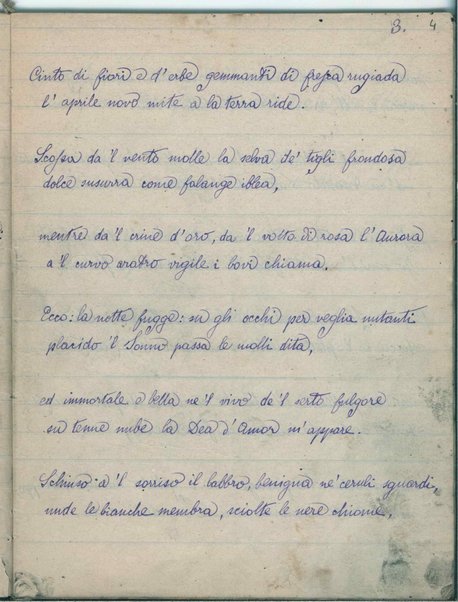 3. 4
Cinto di fiori e d'erbe gemmanti di fresca rugiada
l'aprile novo mite a la terra ride.
Scossa da 'l vento molle la selva de' tigli frondosa
dolce susurra come falange iblea,
mentre da 'l crine d'oro, da 'l volto di rosa l'Aurora
a 'l curvo aratro vigile i bovi chiama.
Ecco: la notte fugge: su gli occhi per veglia nutanti
placido 'l Sonno passa le molli dita,
ed immortale e bella ne 'l vivo de 'l serto fulgore
su tenue nube la Dea d'Amor m'appare.
Schiuso a 'l sorriso il labbro, benigna ne' ceruli sguardi,
nude le bianche membra, sciolte le nere chiome,